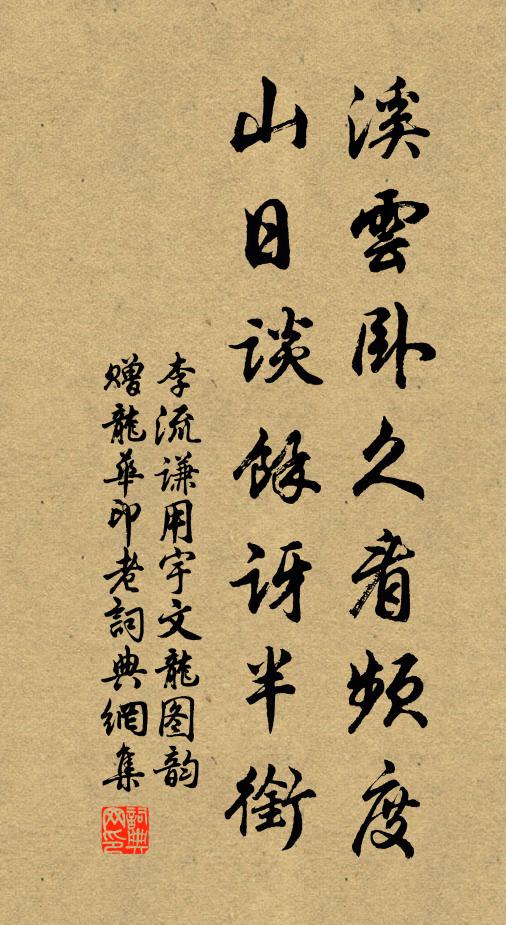 溪雲卧久看頻度
山日談餘訝半銜
李流謙用宇文龍图韵
赠龍華印老詞典網集
詞典網印